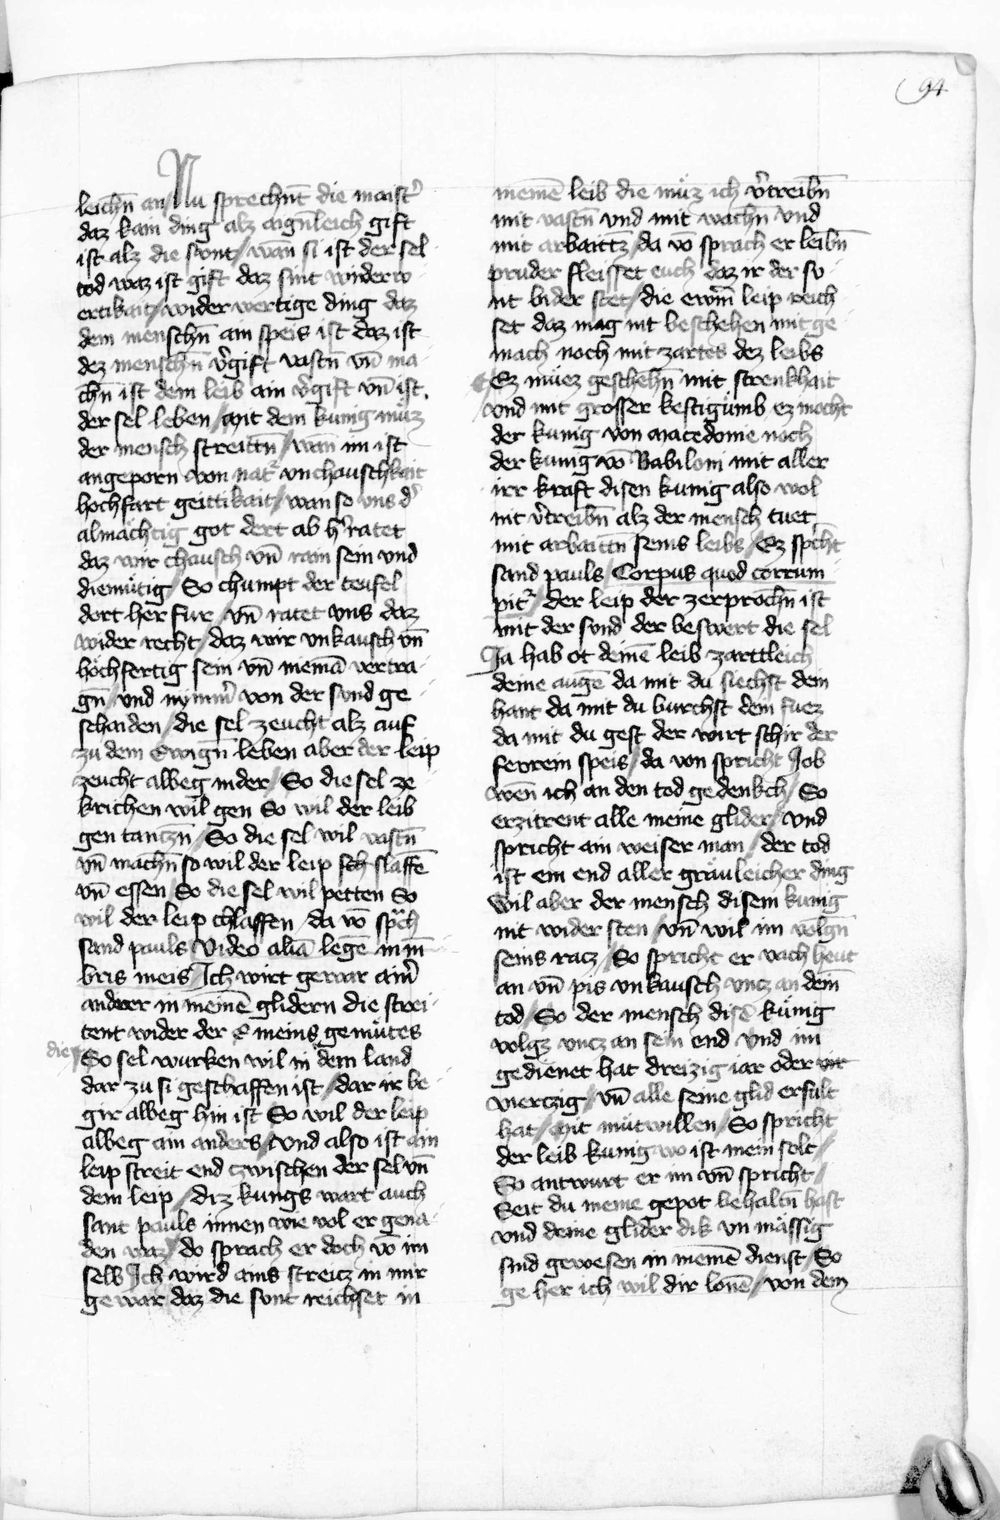 94
leichn̄ an / Nu sprechn̄t die maist̾
daz kain ding alz aign̄leich gift
ist alz die sunt / wan̄ si ist der sel
tod waz ist gift daz sint widerw
ertikait / wider wertige ding daz
dem menschn̄ ain speis ist daz ist
dez menschn̄ v̾gift vastn̄ vn̄ wa
chn̄ ist dem leib ain v̾gift vn̄ ist
der sel leben / mit dem kunig müz
der mensch streittn̄ / wan im ist
angeporn von nat̾ vnchauschkait
hochfart geittikait / wan so vns d̾
almächtig got dert ab h̾ ratet
daz wir chausch vn̄ rain sein vnd
diemütig / So chumpt der teufel
dort her fur / vn̄ ratet vns daz
wider recht / daz wir vnkausch vn̄
höchfertig sein vn̄ niemā vertra
gn̄ / vnd nymm̾ von der sund ge
schaiden / die sel zeucht alz auf
zu dem Ewign̄ leben aber der leip
zeucht albeg nider / So die sel ze
krichen wil gen So wil der leib
gen tantzn̄ / So die sel wil vastn̄
vn̄ wachn̄ so wil der leip sch slaffē
vn̄ essen / So die sel wil petten So
wil der leip chlaffen / da vō sp̾ch
sand pauls Video aliā legē in m̄
bris meis / Ich wirt gewar ain̾
anderer in meinē glidern die strei
tent wider der E meins gemütes
die
So sel wurken wil in dem land
dar zu si geschaffen ist / dar ir be
gir albeg hin ist So wil der leip
albeg ain anders / vnd also ist ain
leip streit end zwischen der sel vn̄
dem leip / diz kungs wart auch
sant pauls innen wie vol er gena
den waz / do sprach er doch vō im
selb Ich wird ains streitz in mir
gewar daz die sunt reichset in
meinē leib die müz ich v̾treibn̄
mit vastn̄ vnd mit wachn̄ vnd
mit arbaittz / da vō sprach er leibn̄
pruder fleisset euch daz ir der su
nt bider stet / die ewrm̄ leip reich
set daz mag nit beschehen mit ge
mach noch mit zartes dez leibs
Ez müez geschehn̄ mit strenkhait
vnd mit grosser kestigumb ez macht
der kunig von macedonie noch
der kunig vō Babiloni mit aller
irr kraft disen kunig also wol
nit v̾treibn̄ alz der mensch tuet
mit arbaittn̄ seins leibs / Ez sp̾cht
sand pauls / Corpus quod corrum
pit̾ / der leip der zerprochn̄ ist
mit der sund der beswert die sel
Ja hab ot deinē leib zarttleich
deine augē da mit du siechst dein
hant da mit du wurchst dein fuez
da mit du gest der wirt schir der
ferrein speis / da von spricht Job
wen̄ ich an den tod gedenkch / So
erzitrent alle meine glider / vnd
spricht ain weiser man / der tod
ist ein end aller gräuleicher ding
wil aber der mensch disem kunig
nit wider sten / vn̄ wil im volgn̄
seins racz / So spricht er vach heut
an vn̄ pis vnkausch vncz an dein̄
tod / So der mensch disē künig
volgz vncz an sein end vnd im
gedienet hat dreizig iar oder
vierczig / vn̄ alle seine glid erfult
hat / mit mütwillen / So spricht
der leib kunig wo ist mein solt /
So antwurt er im vn̄ spricht /
Seit du meine gepot behaltn̄ hast
vnd deine glider dik vn mässig
sind gewesen in meinē dienst / So
ge her ich wil dir lonē / von dem